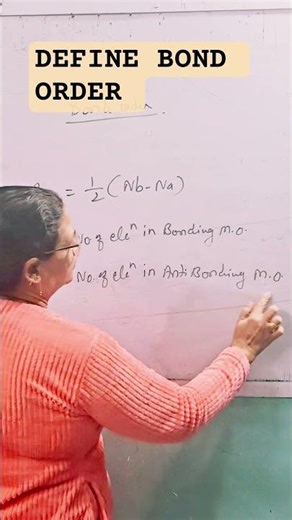 DEFINE BOND
ORDER
= 1/2 (Nb-Na)
No. of eleⁿ in Bonding M.O.
No. of eleⁿ in Anti Bonding M.O.